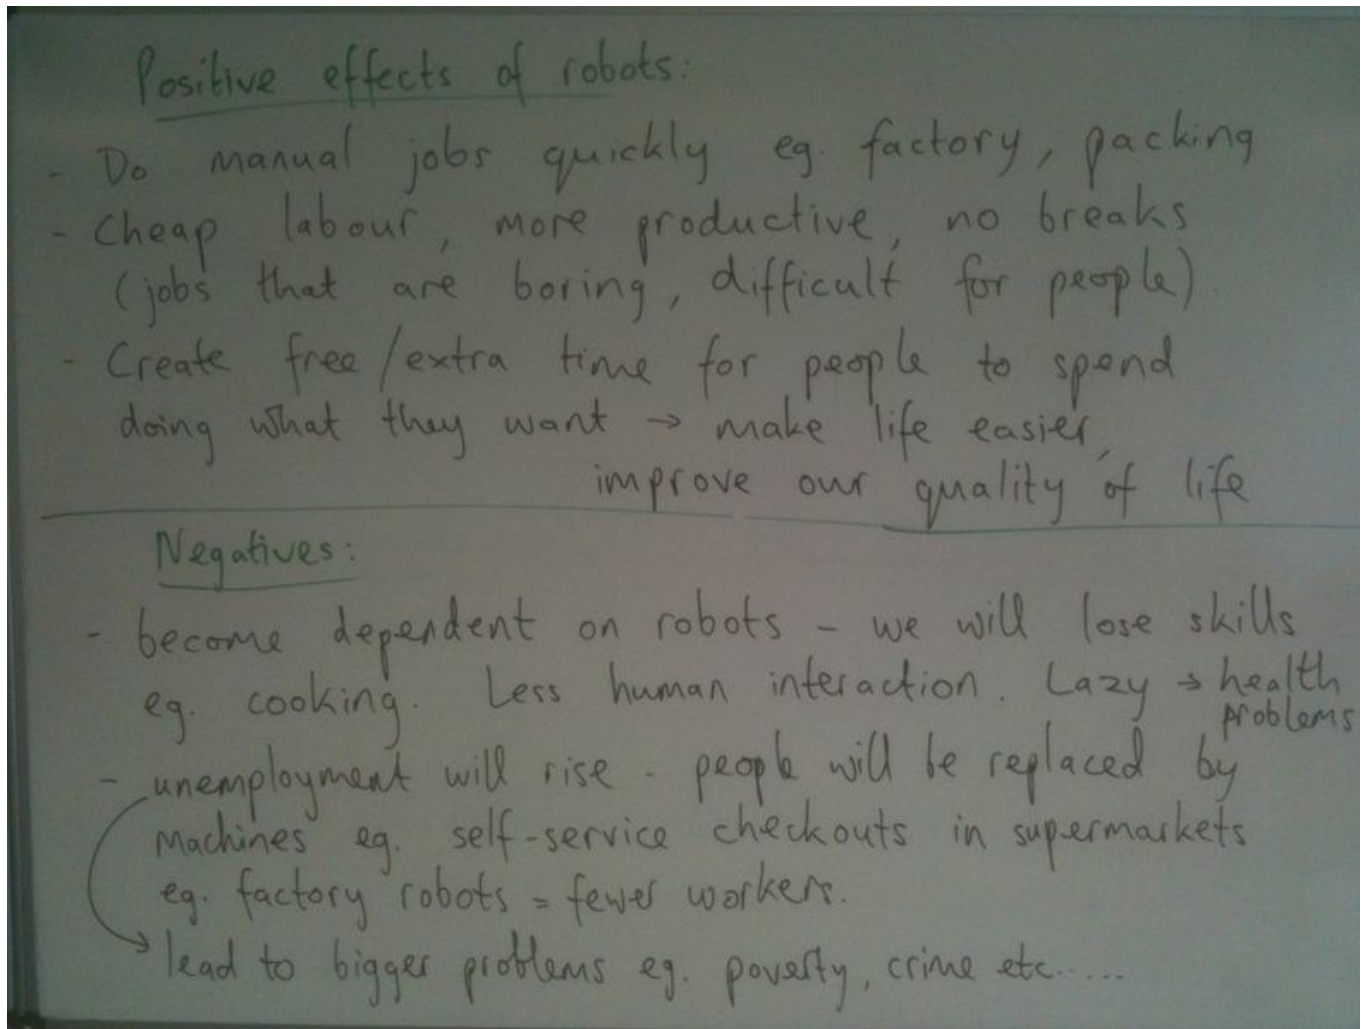 Positive effects of robots:
- Do manual jobs quickly eg. factory, packing
- Cheap labour, more productive, no breaks
(jobs that are boring, difficult for people).
- Create free/extra time for people to spend
doing what they want → make life easier,
improve our quality of life
Negatives:
- become dependent on robots - we will lose skills
eg. cooking. Less human interaction. Lazy → health
problems
- unemployment will rise - people will be replaced by
machines eg. self-service checkouts in supermarkets
eg. factory robots = fewer workers.
→ lead to bigger problems eg. poverty, crime etc.....